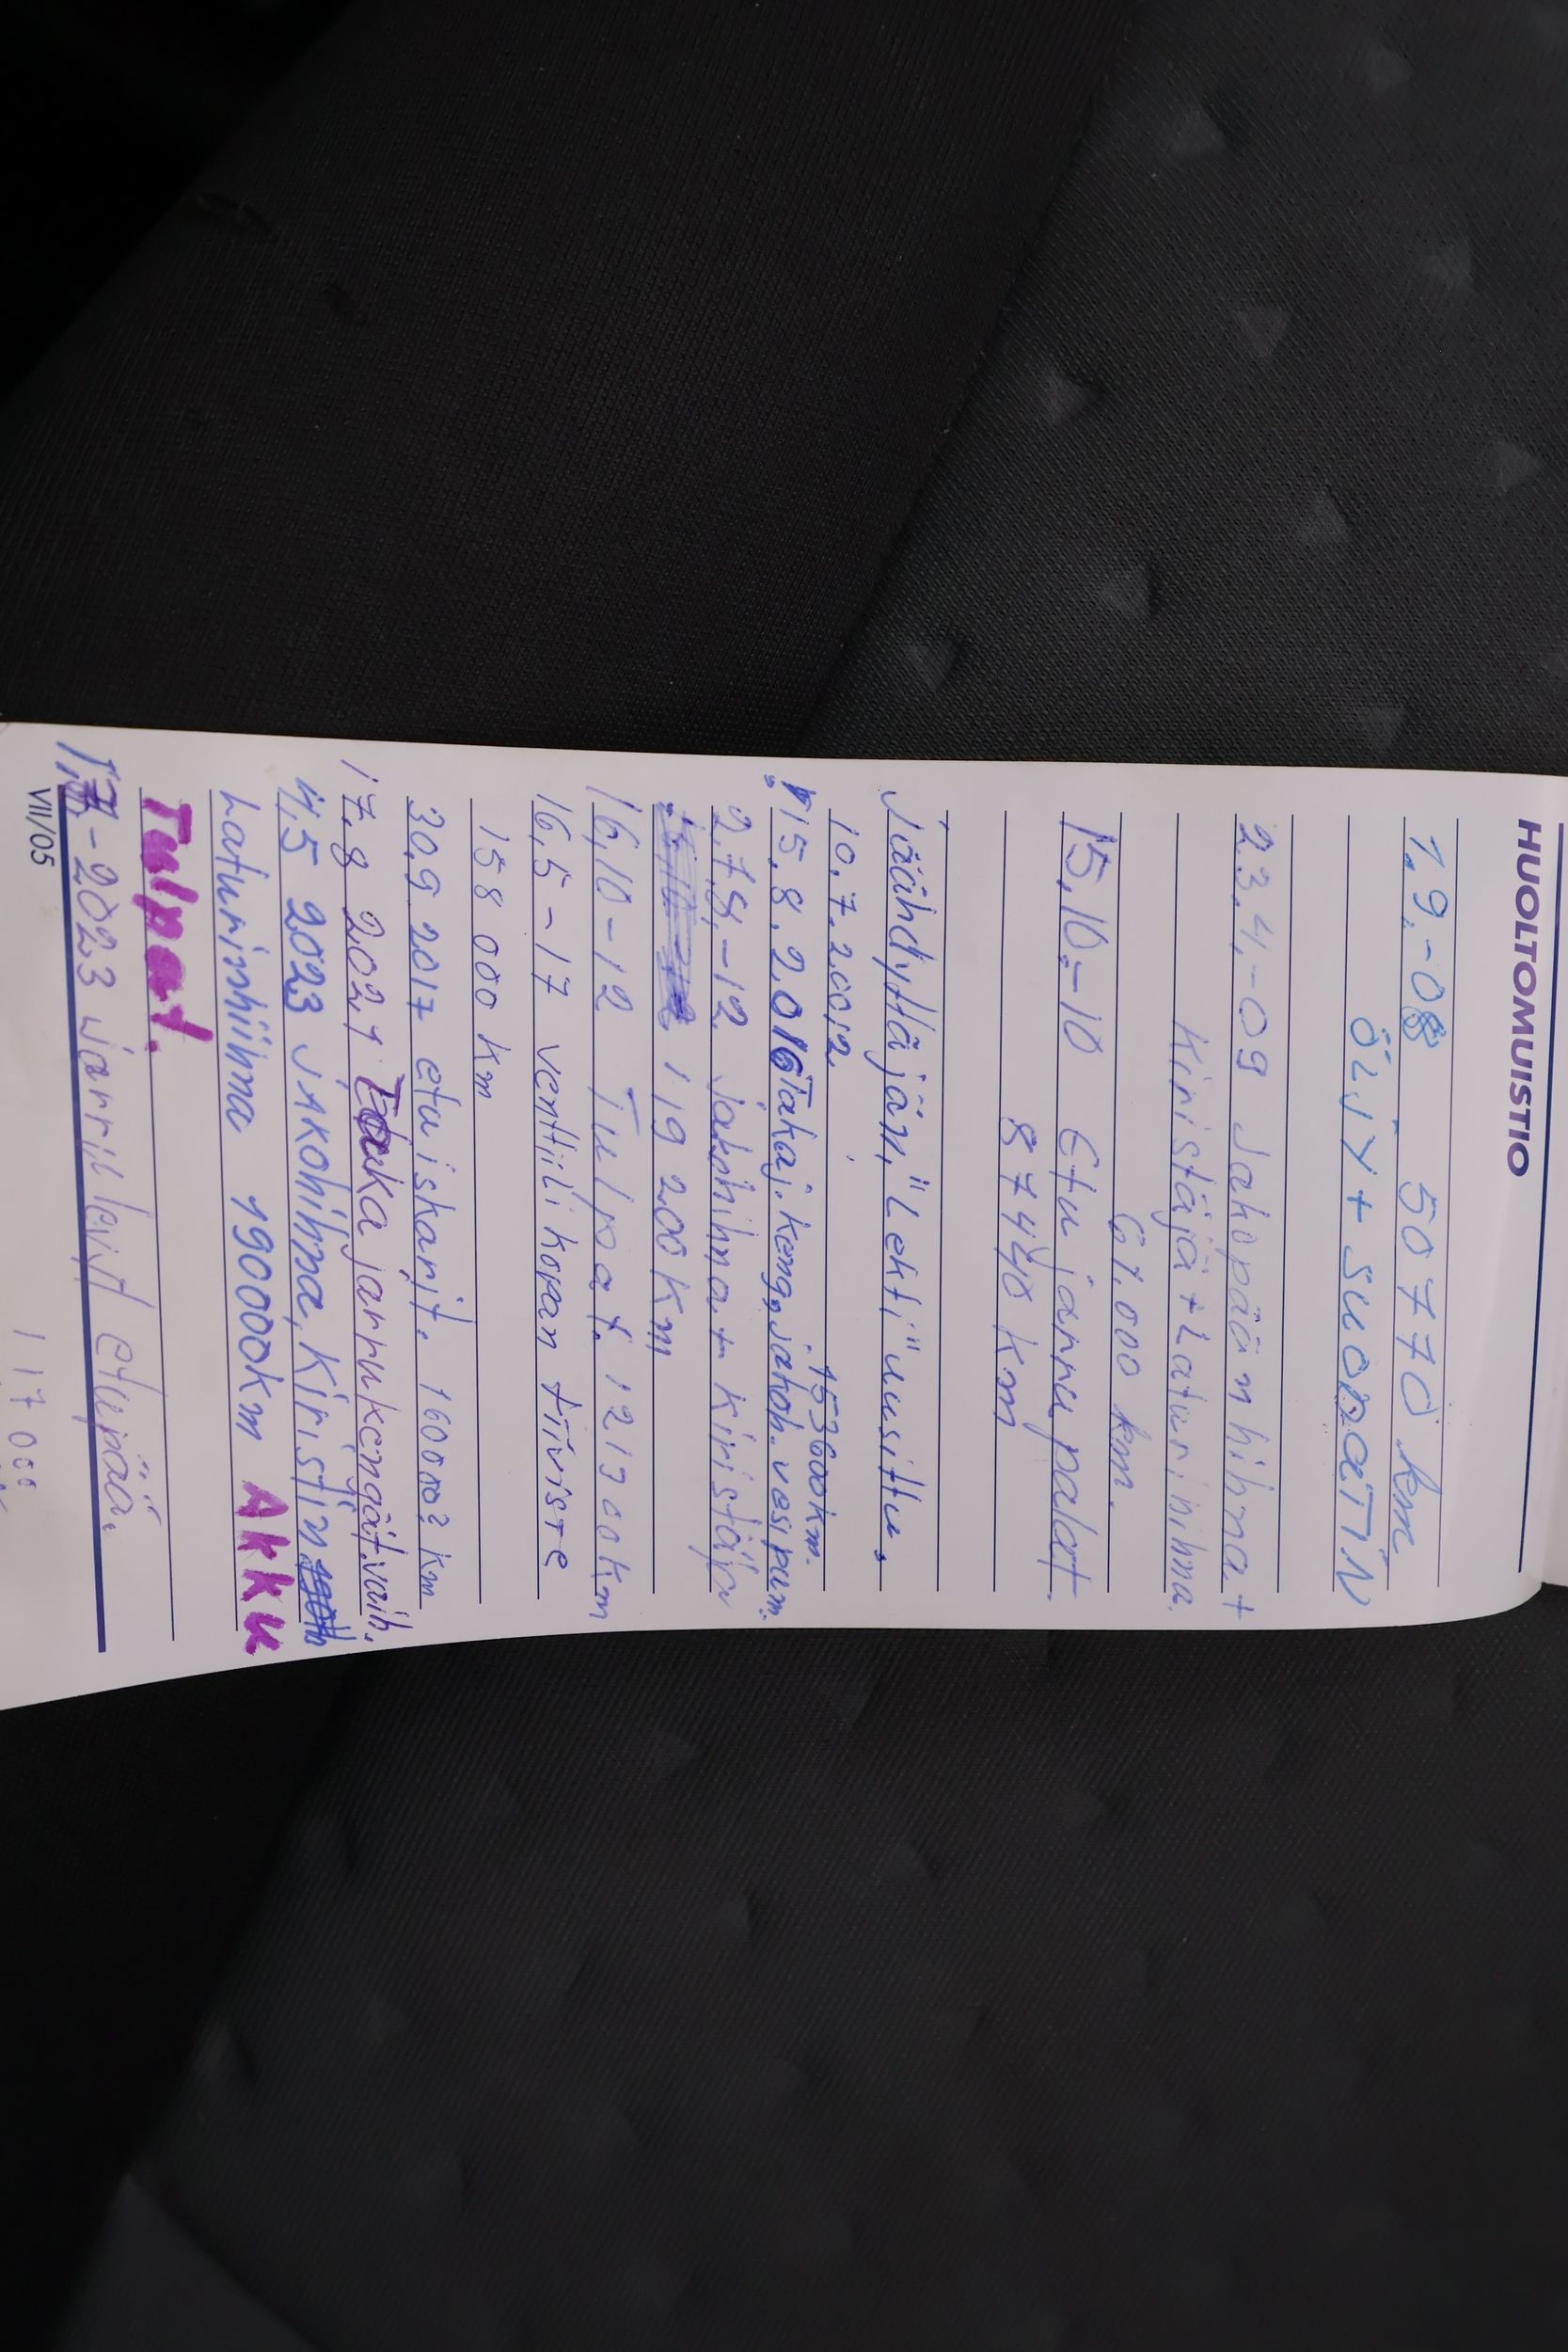 HUOLTOMUISTIO
1.9.-08 50770 km
ÖLJY + SUODATIN
23.4.-09 Jakopään hihna +
kiristäjä + Laturin hihna.
61.000 km.
15.10.-10 Etu jarru palat.
87440 km
Jäähdyttäjän, "Lekti" uusittu.
10.7.20012. 153600km.
15.8.2016 Takaj.keng, jakoh. vesipum.
2.7.8.-12 jakohihna + kiristäjä
119 200 km
16,10-12 Tulpat. 121300km
16,5-17 venttiili kopan tiiviste
158 000 km
30,9 2017 etu iskarit. 160000? km
17.8 2021 Taka jarrukengät.vaih.
4,5 2023 JAKOhihna, Kiristin
Laturinhihna 190000km Akku
Tulpat.
-2023 Jarrulevyt etupää.
VII/05
117 000